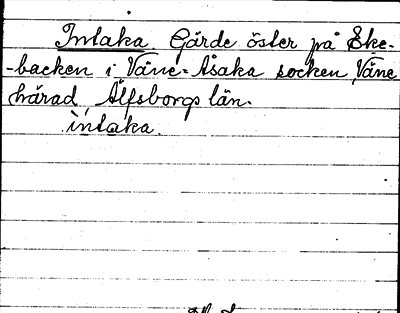 Intaka Gärde öster på Eke-
-backen i Väne-Åsaka socken, Väne
härad, Älfsborgs län.
ìntaka.